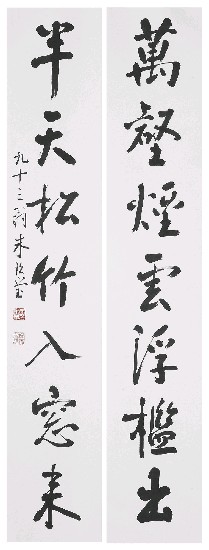 萬壑煙雲浮檻出
半天松竹入窗來
九十三翁朱屺瞻